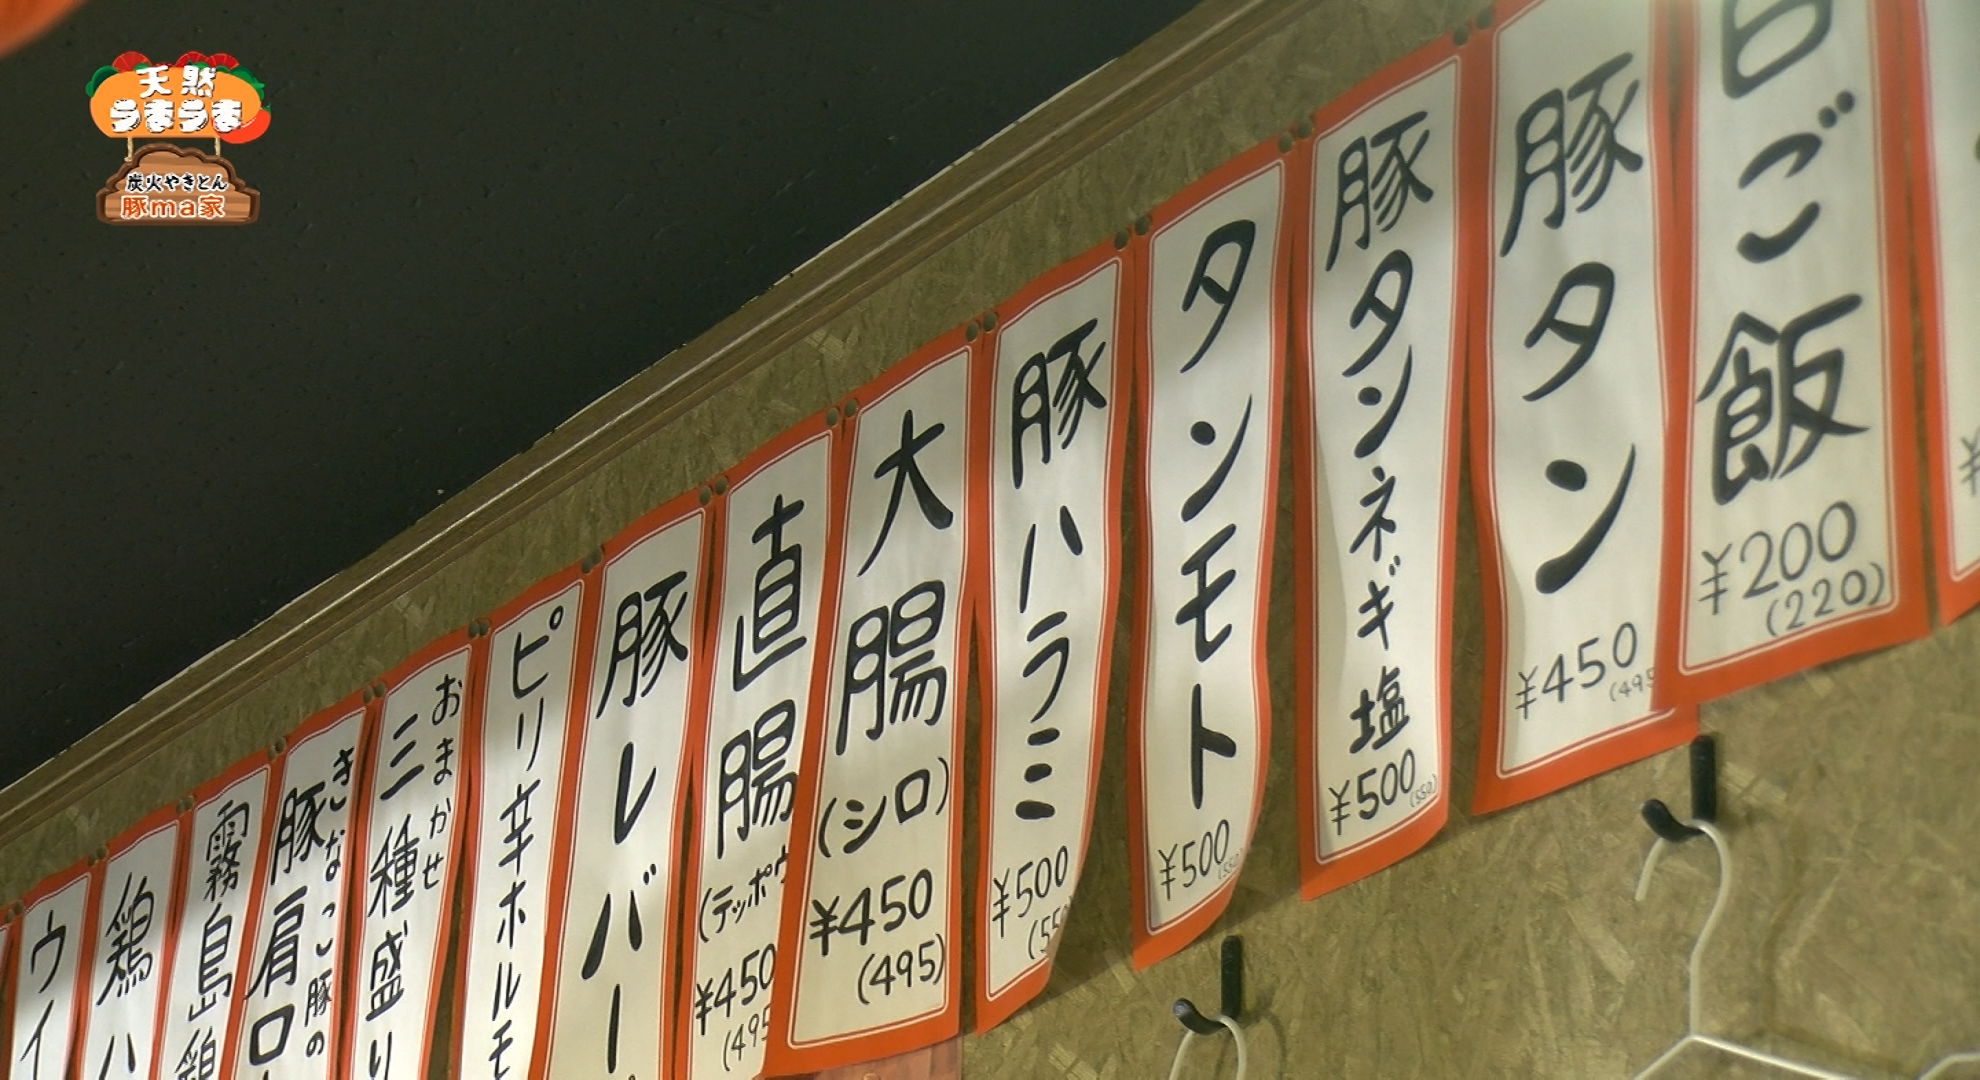 天然
うまうま
炭火やきとん
豚ma家
白ご飯
¥200
(220)
豚タン
¥450
(495
豚タンネギ塩
¥500
(550)
タンモト
¥500
(550
豚ハラミ
¥500
(55
大腸
(シロ)
¥450
(495)
直腸
(テッポウ
¥450
(495
豚レバー
ピリ辛ホルモ
おまかせ
三種盛り
きなっこ豚の
豚肩ロ
霧島鶏
鶏ハ
ウイ